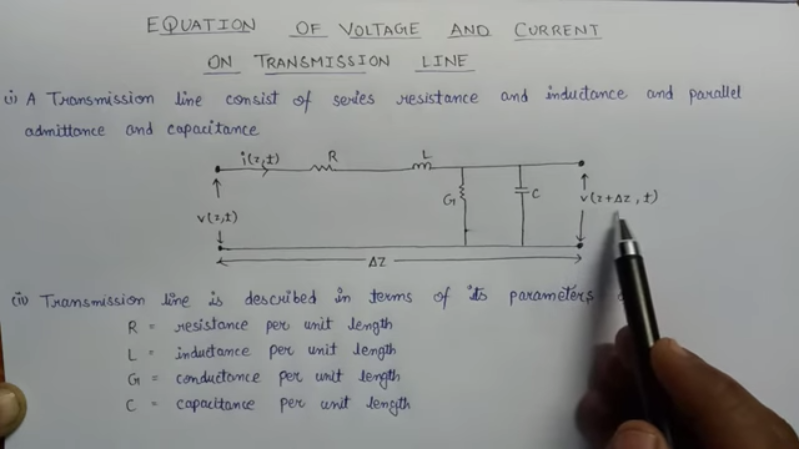 EQUATION OF VOLTAGE AND CURRENT
ON TRANSMISSION LINE
(i) A Transmission line consist of series resistance and inductance and parallel
admittance and capacitance
i(z,t) R L
G C
v(z,t) v(z+Δz,t)
Δz
(ii) Transmission line is described in terms of its parameters
R = resistance per unit length
L = inductance per unit length
G = conductance per unit length
C = capacitance per unit length